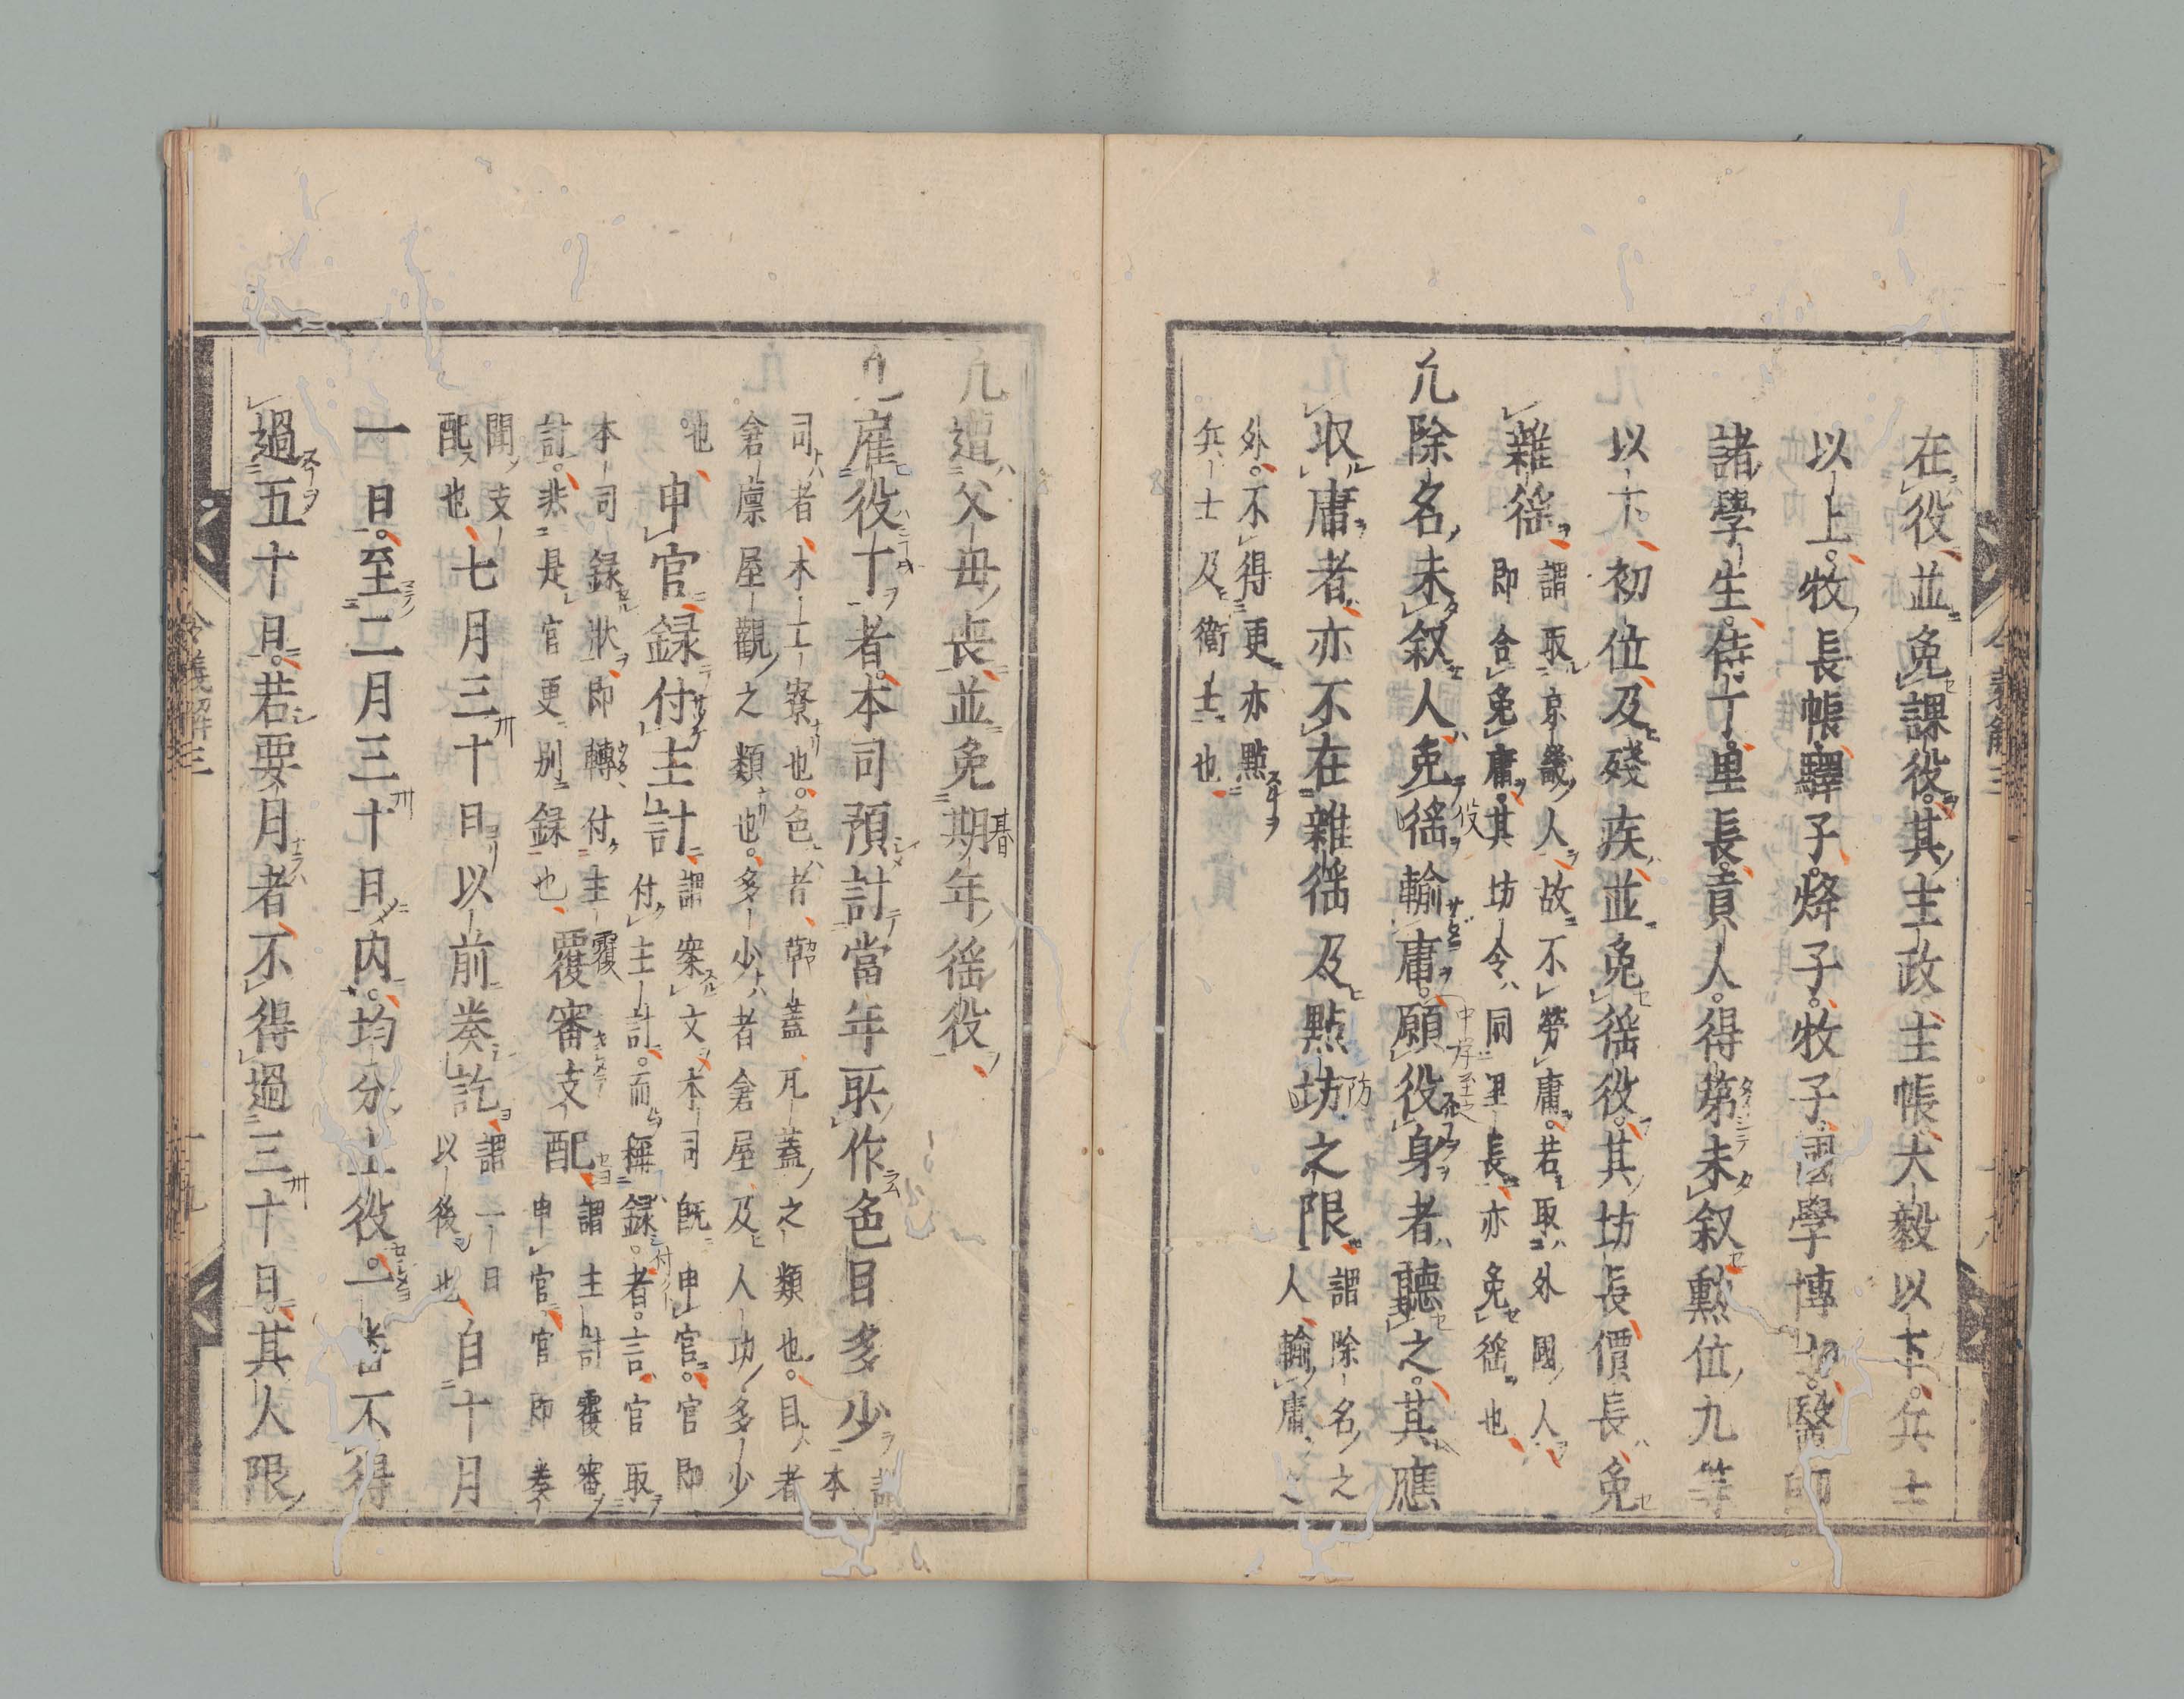 在役並免課役其主政主帳大毅以下兵士
以上牧長帳驛子烽子牧子國學博士醫師
諸學生侍丁里長貢人得第未叙勲位九等
以下初位及殘疾並免徭役其坊長價長免
雜徭謂取京畿人故不勞庸若取外國人
即合免庸其坊令同里長亦免徭也
凢除名未叙人免徭輸庸願役身者聽之其應
收庸者亦不在雜徭及點坊之限謂除名之
人輸庸之
外不得更亦點
兵士及衛士也
凢遭父母喪並免期年徭役
凢雇役丁者本司預計當年所作色目多少謂
本
司者木工寮也色者
蓋瓦蓋之類也目者
倉廩屋觀之類也多少者倉屋及人功多少
也
申官録付主計謂案文本司既申官官即
付主計而稱録者言官取
本司録狀即轉付主
計非是官更別録也
覆審支配謂主計覆審
申官官即奏
聞支
配也
七月三十日以前奏訖謂一日
以後也
自十月
一日至二月三十日内均分上役一番不得
過五十日若要月者不得過三十日其人限
令義解三